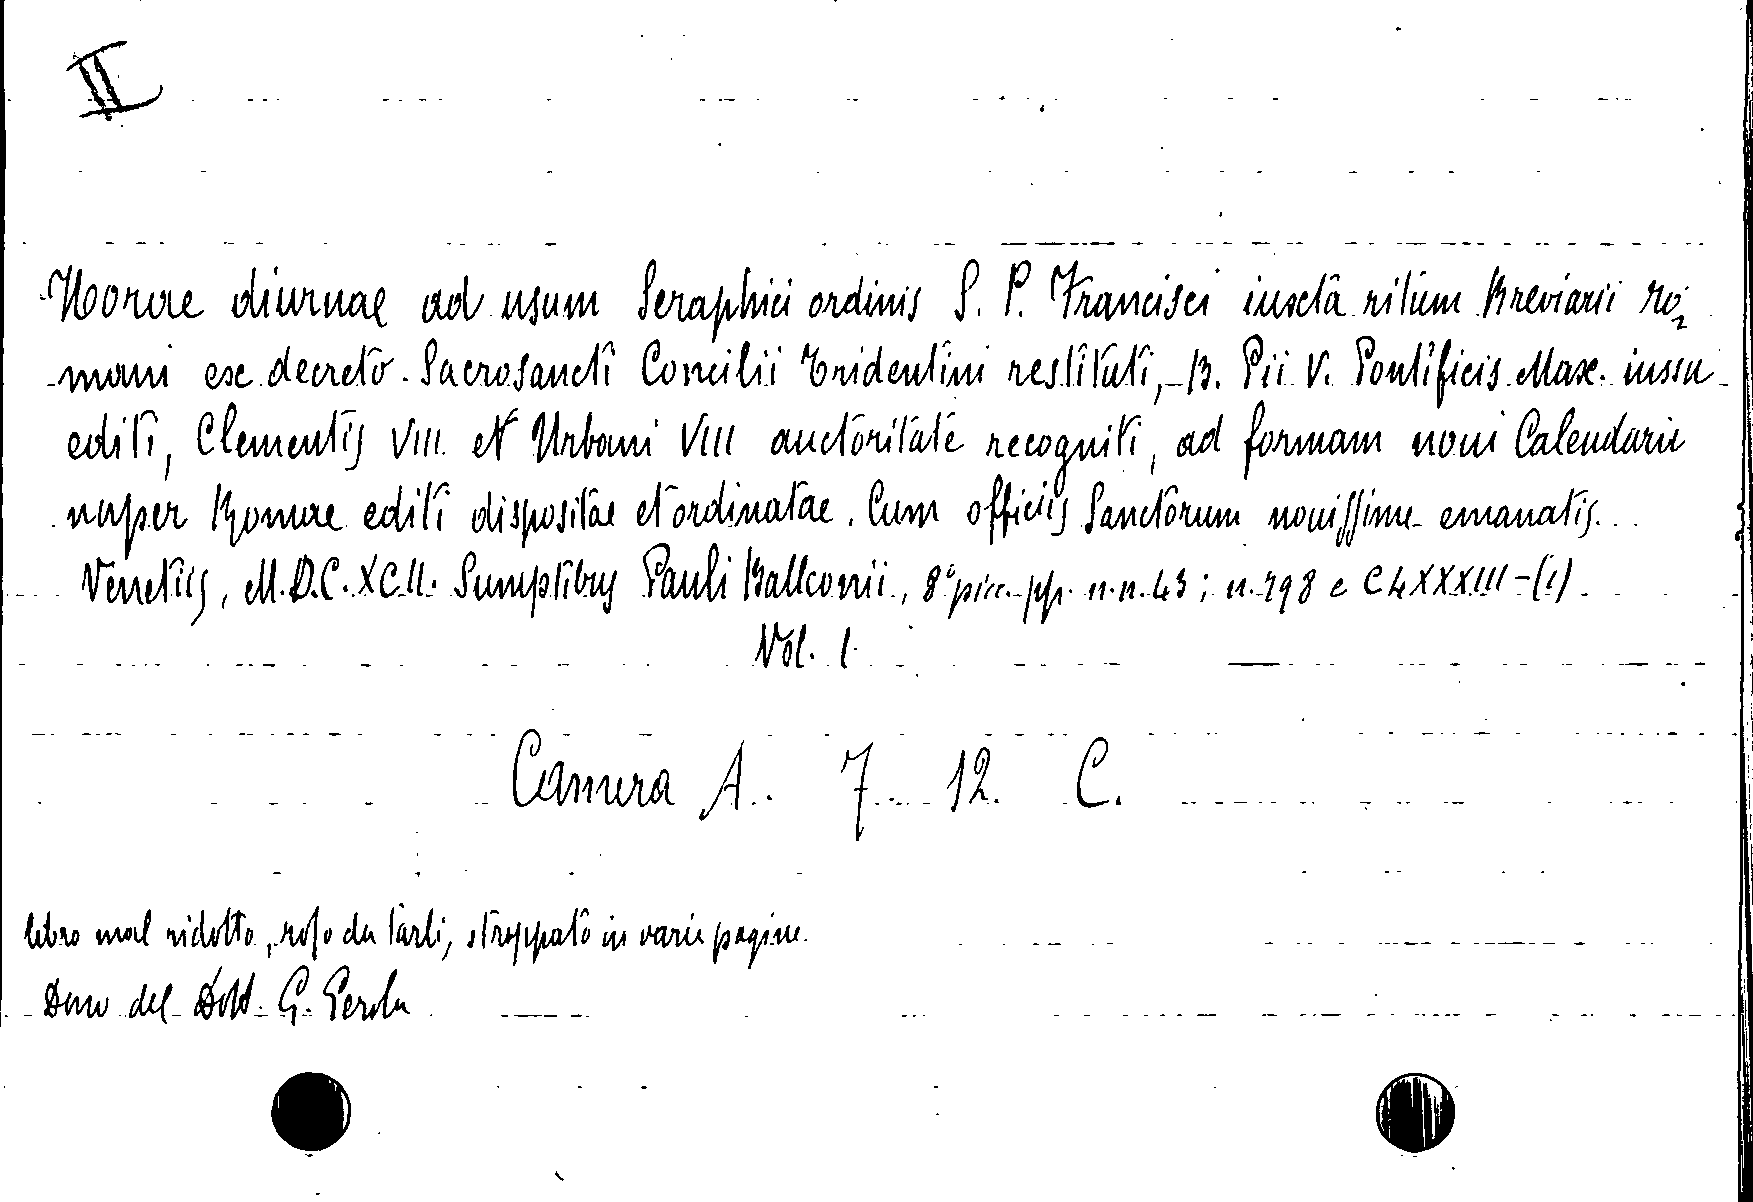 II
Horae diurnae ad usum Seraphici ordinis S. P. Francisci iuxta ritum Breviarii ro=
mani ex decreto Sacrosancti Concilii Tridentini restituti, B. Pii V. Pontificis Max. iussu
editi, Clementis VIII et Urbani VIII auctoritate recogniti, ad formam novi Calendarii
nuper Romae editi dispositae et ordinatae. Cum officiis Sanctorum novissime emanatis.
Venetiis, M.D.C.XCII. Sumptibus Pauli Balleonii, 8° picc. pp. n.n. 43; n. 798 e CLXXXIII-(1)
Vol. 1
Camera A. 7 12. C.
libro mal ridotto, roso da tarli, strappato in varie pagine.
Dono del Dott. G. Perola